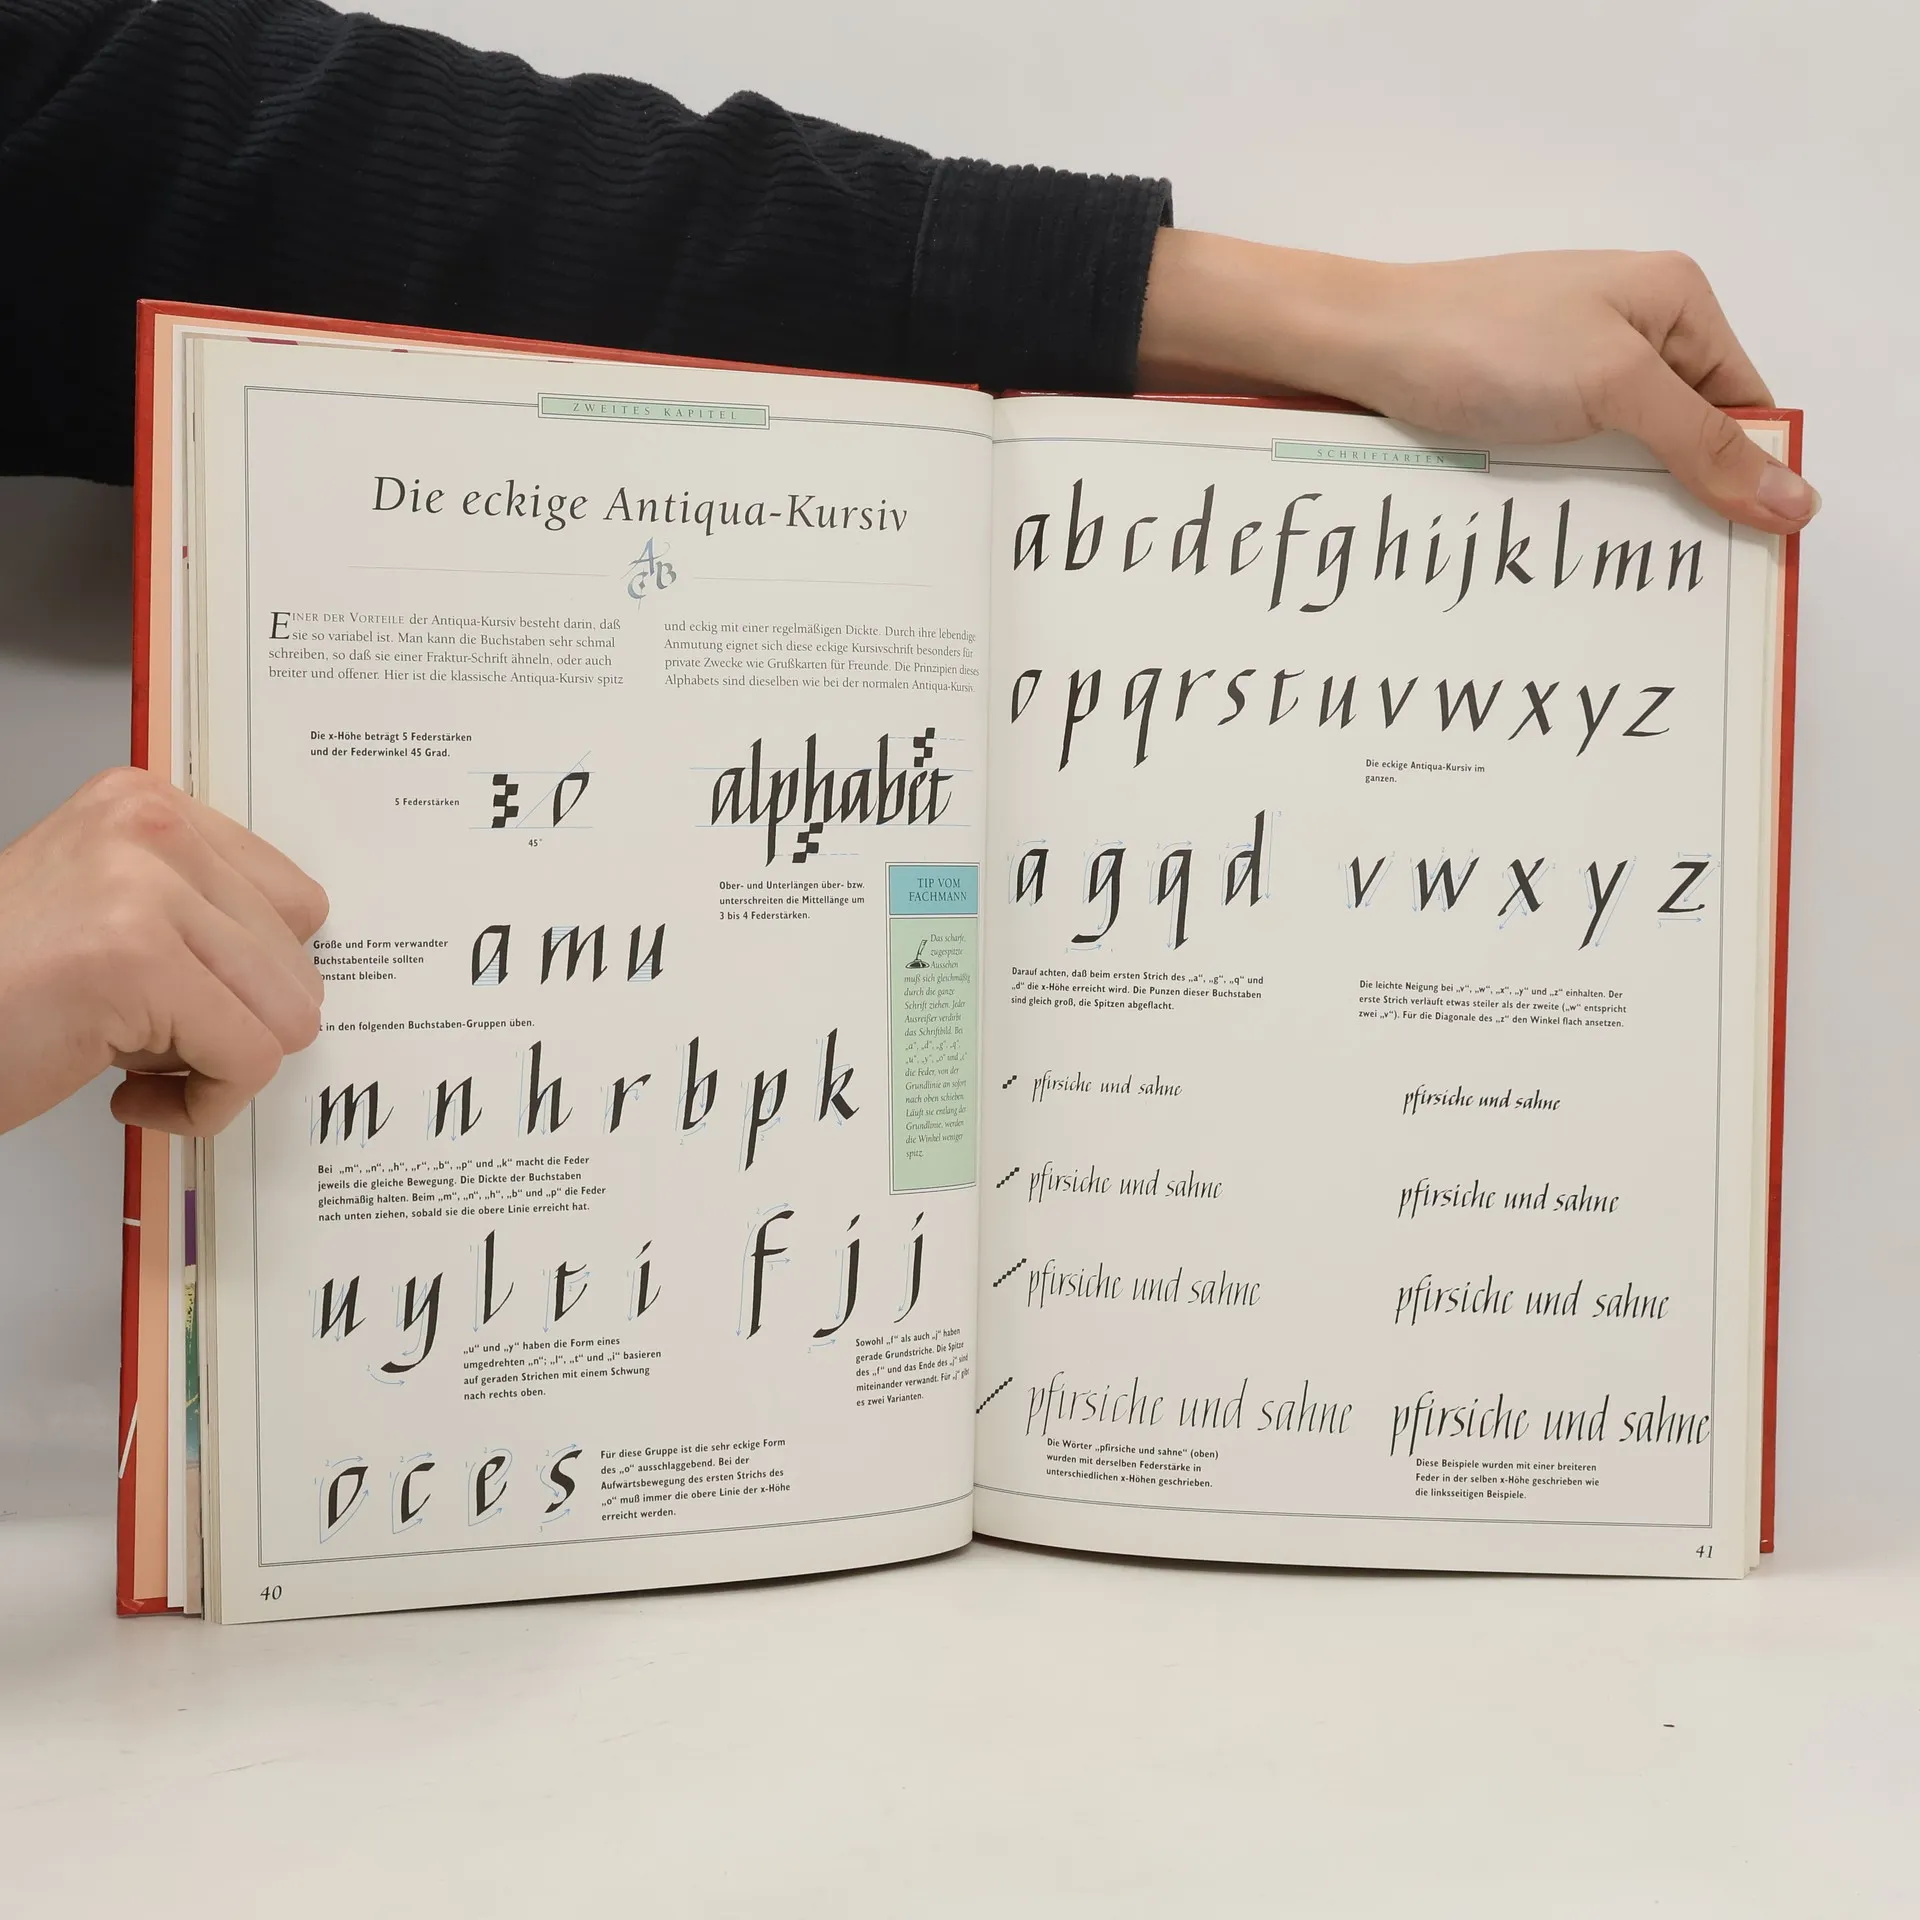 ZWEITES KAPITEL
Die eckige Antiqua-Kursiv
EINER DER VORTEILE der Antiqua-Kursiv besteht darin, daß
sie so variabel ist. Man kann die Buchstaben sehr schmal
schreiben, so daß sie einer Fraktur-Schrift ähneln, oder auch
breiter und offener. Hier ist die klassische Antiqua-Kursiv spitz
und eckig mit einer regelmäßigen Dickte. Durch ihre lebendige
Anmutung eignet sich diese eckige Kursivschrift besonders für
private Zwecke wie Grußkarten für Freunde. Die Prinzipien dieses
Alphabets sind dieselben wie bei der normalen Antiqua-Kursiv.
Die x-Höhe beträgt 5 Federstärken
und der Federwinkel 45 Grad.
5 Federstärken
o
45°
alphabet
Ober- und Unterlängen über- bzw.
unterschreiten die Mittellänge um
3 bis 4 Federstärken.
Größe und Form verwandter
Buchstabenteile sollten
konstant bleiben.
a m u
in den folgenden Buchstaben-Gruppen üben.
m n h r b p k
Bei „m“, „n“, „h“, „r“, „b“, „p“ und „k“ macht die Feder
jeweils die gleiche Bewegung. Die Dickte der Buchstaben
gleichmäßig halten. Beim „m“, „n“, „h“, „b“ und „p“ die Feder
nach unten ziehen, sobald sie die obere Linie erreicht hat.
u y l t i
„u“ und „y“ haben die Form eines
umgedrehten „n“; „l“, „t“ und „i“ basieren
auf geraden Strichen mit einem Schwung
nach rechts oben.
f j j
Sowohl „f“ als auch „j“ haben
gerade Grundstriche. Die Spitze
des „f“ und das Ende des „j“ sind
miteinander verwandt. Für „j“ gibt
es zwei Varianten.
o c e s
Für diese Gruppe ist die sehr eckige Form
des „o“ ausschlaggebend. Bei der
Aufwärtsbewegung des ersten Strichs des
„o“ muß immer die obere Linie der x-Höhe
erreicht werden.
TIP VOM
FACHMANN
Das scharfe,
zugespitzte
Aussehen
muß sich gleichmäßig
durch die ganze
Schrift ziehen. Jeder
Ausreißer verdirbt
das Schriftbild. Bei
„a“, „d“, „g“, „q“,
„u“, „y“, „o“ und
die Feder, von der
Grundlinie an sofort
nach oben schieben.
Läuft sie entlang der
Grundlinie, werden
die Winkel weniger
spitz.
40
SCHRIFTARTEN
abcdefghijklmn
opqrstuvwxyz
Die eckige Antiqua-Kursiv im
ganzen.
a g q d
Darauf achten, daß beim ersten Strich des „a“, „g“, „q“ und
„d“ die x-Höhe erreicht wird. Die Punzen dieser Buchstaben
sind gleich groß, die Spitzen abgeflacht.
v w x y z
Die leichte Neigung bei „v“, „w“, „x“, „y“ und „z“ einhalten. Der
erste Strich verläuft etwas steiler als der zweite („w“ entspricht
zwei „v“). Für die Diagonale des „z“ den Winkel flach ansetzen.
pfirsiche und sahne
pfirsiche und sahne
pfirsiche und sahne
pfirsiche und sahne
Die Wörter „pfirsiche und sahne“ (oben)
wurden mit derselben Federstärke in
unterschiedlichen x-Höhen geschrieben.
pfirsiche und sahne
pfirsiche und sahne
pfirsiche und sahne
pfirsiche und sahne
Diese Beispiele wurden mit einer breiteren
Feder in der selben x-Höhe geschrieben wie
die linksseitigen Beispiele.
41